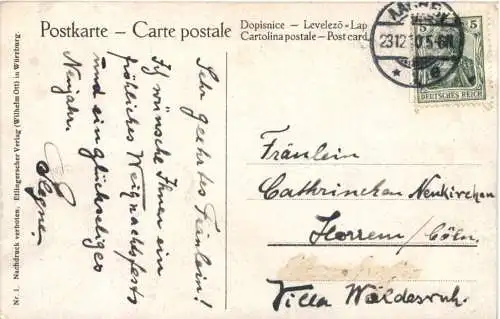 Postkarte - Carte postale
Dopisnice - Levelezõ=Lap
Cartolina postale - Post card
AACHEN
23 12 10 5-6N
5
DEUTSCHES REICH
Sehr geehrtes Fräulein!
Ich wünsche Ihnen ein
fröhliches Weihnachtsfest
und ein glückseliges
Neujahr.
Fräulein
Cathrinchen Neukirchen
Horrem / Cöln.
Villa Waldesruh.
Nr. 1. Nachdruck verboten. Etlingerscher Verlag (Wilhelm Ott) in Würzburg.